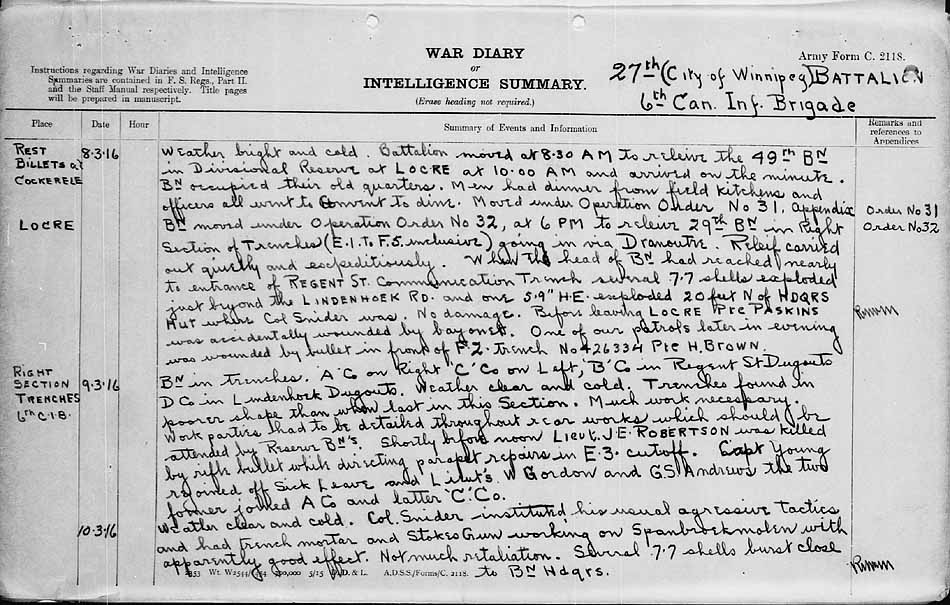 WAR DIARY
or
INTELLIGENCE SUMMARY.
(Erase heading not required.)
Instructions regarding War Diaries and Intelligence
Summaries are contained in F. S. Regs., Part II.
and the Staff Manual respectively. Title pages
will be prepared in manuscript.
Army Form C. 2118.
27th (City of Winnipeg) BATTALION
6th Can. Inf. Brigade
Place
Date
Hour
Summary of Events and Information
Remarks and
references to
Appendices
REST
BILLETS at
COCKERELE
8.3.16
Weather bright and cold. Battalion moved at 8.30 AM to releive the 49th BN
in Divisional Reserve at LOCRE at 10.00 AM and arrived on the minute.
BN occupied their old quarters. Men had dinner from field kitchens and
officers all went to Convent to dine. Moved under Operation Order No 31, Appendix
Order No 31
LOCRE
BN moved under Operation Order No 32, at 6 PM to releive 29th BN in Right
Order No 32
Section of Trenches (E.1. To F.5. inclusive) going in via Dranoutre. Releif carried
out quietly and expeditiously. When the head of BN had reached nearly
to entrance of REGENT ST. Communication Trench several 7.7 shells exploded
just beyond the LINDENHOEK RD. and one 5.9" H.E. exploded 20 feet N of HDQRS
Hut where Col Snider was. No damage. Before leaving LOCRE Pte PASKINS
was accidentally wounded by bayonet. One of our patrols later in evening
was wounded by bullet in front of F.2. trench No 426334 Pte H. Brown.
RIGHT
SECTION
TRENCHES
6th C.I.B.
9.3.16
BN in trenches. 'A' Co on Right 'C' Co on Left, 'B' Co in Regent St Dugouts
D Co in Lindenhoek Dugouts. Weather clear and cold. Trenches found in
poorer shape than when last in this Section. Much work necessary.
Work parties had to be detailed throughout rear works which should be
attended by Reserve BN's. Shortly before noon Lieut. J.E. ROBERTSON was killed
by rifle bullet while directing parapet repairs in E.3. cutoff. Capt Young
rejoined off Sick Leave and Lieut's W Gordon and G.S. Andrews the two
former joined A Co and latter 'C' Co.
10.3.16
Weather clear and cold. Col. Snider instituted his usual agressive tactics
and had trench mortar and Stokes Gun working on Spanbroekmolen with
apparently good effect. Not much retaliation. Several 7.7 shells burst close
to BN Hdqrs.
5/15
D. & L.
A.D.S.S./Forms/C. 2118.